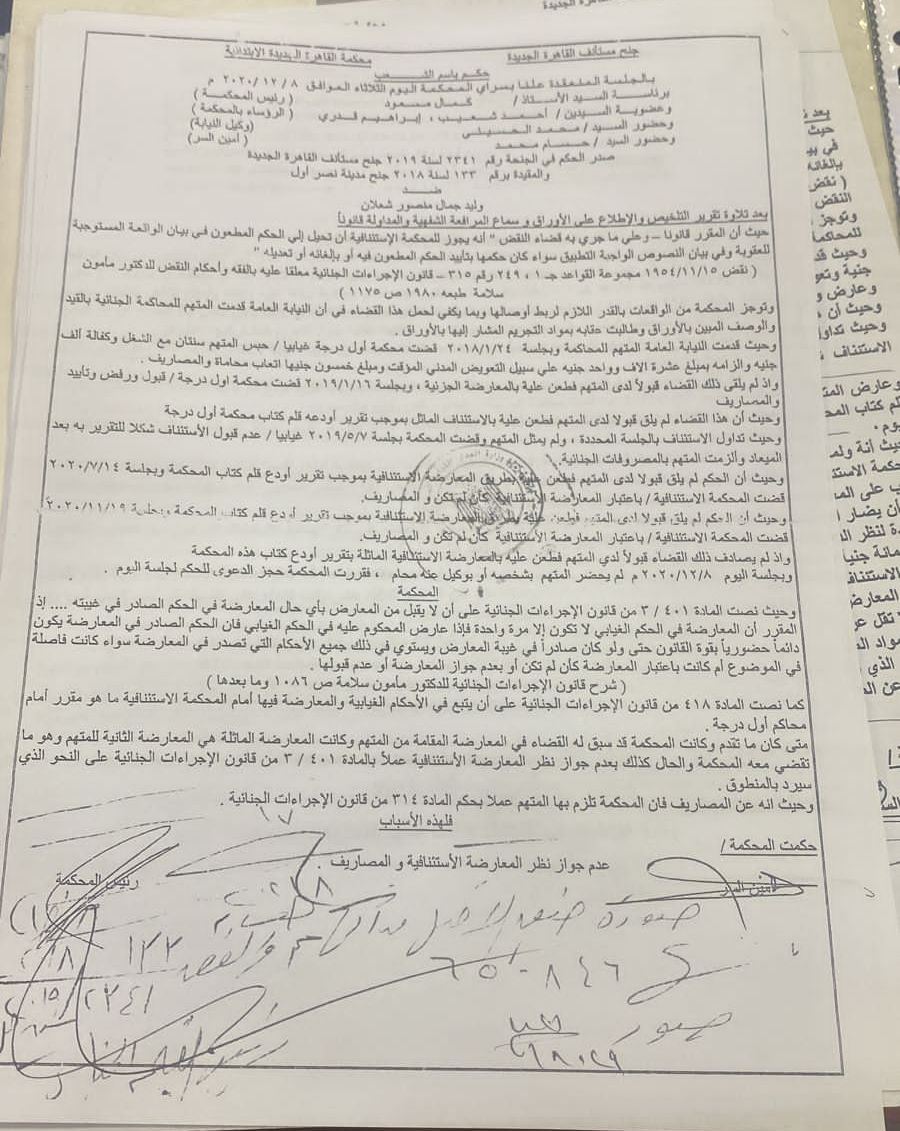 محكمة القاهرة الجديدة الابتدائية
جنح مستأنف القاهرة الجديدة
حكم باسم الشعب
بالجلسة المنعقدة علنا بسراي المحكمة اليوم الثلاثاء الموافق ٢٠٢٠/١٢/٨ م
برئاسة السيد الأستاذ / كمال مسعود ( رئيس المحكمة )
وعضوية السيدين / أحمد شعيب ، إبراهيم قدري ( الرؤساء بالمحكمة )
وحضور السيد / محمد الحسيني (وكيل النيابة)
وحضور السيد / حسام محمد ( أمين السر)
صدر الحكم في الجنحة رقم ٢٣٤١ لسنة ٢٠١٩ جنح مستأنف القاهرة الجديدة
والمقيدة برقم ١٣٣ لسنة ٢٠١٨ جنح مدينة نصر أول
ضــد
وليد جمال منصور شعلان
بعد تلاوة تقرير التلخيص والإطلاع على الأوراق و سماع المرافعة الشفهية والمداولة قانوناً
حيث أن المقرر قانونا – وعلي ما جري به قضاء النقض " أنه يجوز للمحكمة الإستئنافية أن تحيل إلي الحكم المطعون في بيان الواقعة المستوجبة
للعقوبة وفي بيان النصوص الواجبة التطبيق سواء كان حكمها بتأييد الحكم المطعون فيه أو بإلغائه أو تعديله "
( نقض ١٩٥٤/١١/١٥ مجموعة القواعد جـ ١ ، ٢٤٩ رقم ٣١٥ – قانون الإجراءات الجنائية معلقا عليه بالفقه وأحكام النقض للدكتور مأمون
سلامة طبعه ١٩٨٠ ص ١١٧٥ )
وتوجز المحكمة من الواقعات بالقدر اللازم لربط أوصالها وبما يكفي لحمل هذا القضاء في أن النيابة العامة قدمت المتهم للمحاكمة الجنائية بالقيد
والوصف المبين بالأوراق وطالبت عقابه بمواد التجريم المشار إليها بالأوراق .
وحيث قدمت النيابة العامة المتهم للمحاكمة وبجلسة ٢٠١٨/١/٢٤ قضت محكمة أول درجة غيابيا / حبس المتهم سنتان مع الشغل وكفالة ألف
جنيه وإلزامه بمبلغ عشرة الاف وواحد جنيه علي سبيل التعويض المدني المؤقت ومبلغ خمسون جنيها اتعاب محاماة والمصاريف .
واذ لم يلقى ذلك القضاء قبولاً لدى المتهم فطعن علية بالمعارضة الجزئية ، وبجلسة ٢٠١٩/١/١٦ قضت محكمة أول درجة / قبول ورفض وتأييد
والمصاريف
وحيث أن هذا القضاء لم يلق قبولا لدى المتهم فطعن علية بالاستئناف الماثل بموجب تقرير أودعه قلم كتاب محكمة أول درجة
وحيث تداول الاستئناف بالجلسة المحددة ، ولم يمثل المتهم وقضت المحكمة بجلسة ٢٠١٩/٥/٧ غيابيا / عدم قبول الأستئناف شكلا للتقرير به بعد
الميعاد وألزمت المتهم بالمصروفات الجنائية.
وحيث أن الحكم لم يلق قبولا لدى المتهم فطعن علية بطريق المعارضة الاستئنافية بموجب تقرير أودع قلم كتاب المحكمة وبجلسة ٢٠٢٠/٧/١٤
قضت المحكمة الاستئنافية / باعتبار المعارضة الإستئنافية كأن لم تكن و المصاريف.
وحيث أن الحكم لم يلق قبولا لدى المتهم فطعن علية بطريق المعارضة الاستئنافية بموجب تقرير أودع قلم كتاب المحكمة وبجلسة ٢٠٢٠/١١/١٩
قضت المحكمة الاستئنافية / باعتبار المعارضة الإستئنافية كأن لم تكن و المصاريف.
واذ لم يصادف ذلك القضاء قبولاً لدي المتهم فطعن عليه بالمعارضة الاستئنافية الماثلة بتقرير أودع كتاب هذه المحكمة
وبجلسة اليوم ٢٠٢٠/١٢/٨ م لم يحضر المتهم بشخصه أو بوكيل عنه محام ، فقررت المحكمة حجز الدعوى للحكم لجلسة اليوم .
المحكمة
وحيث نصت المادة ٤٠١ / ٣ من قانون الإجراءات الجنائية على أن لا يقبل من المعارض بأي حال المعارضة في الحكم الصادر في غيبته .... إذ
المقرر أن المعارضة في الحكم الغيابي لا تكون إلا مرة واحدة فإذا عارض المحكوم عليه في الحكم الغيابي فان الحكم الصادر في المعارضة يكون
دائماً حضورياً بقوة القانون حتى ولو كان صادراً في غيبة المعارض ويستوي في ذلك جميع الأحكام التي تصدر في المعارضة سواء كانت فاصلة
في الموضوع ام كانت باعتبار المعارضة كأن لم تكن أو بعدم جواز المعارضة أو عدم قبولها .
( شرح قانون الإجراءات الجنائية للدكتور مأمون سلامة ص ١٠٨٦ وما بعدها )
كما نصت المادة ٤١٨ من قانون الإجراءات الجنائية على أن يتبع في الأحكام الغيابية والمعارضة فيها أمام المحكمة الاستئنافية ما هو مقرر أمام
محاكم أول درجة .
متى كان ما تقدم وكانت المحكمة قد سبق له القضاء في المعارضة المقامة من المتهم وكانت المعارضة الماثلة هي المعارضة الثانية للمتهم وهو ما
تقضي معه المحكمة والحال كذلك بعدم جواز نظر المعارضة الأستئنافية عملاً بالمادة ٤٠١ / ٣ من قانون الإجراءات الجنائية على النحو الذي
سيرد بالمنطوق .
وحيث انه عن المصاريف فان المحكمة تلزم بها المتهم عملا بحكم المادة ٣١٤ من قانون الإجراءات الجنائية .
فلهذه الأسباب
حكمت المحكمة /
عدم جواز نظر المعارضة الأستئنافية و المصاريف .
أمين السر
رئيس المحكمة
صورة
١٣٣
٦٥٠٨٤٦
٢٣٤١
صور